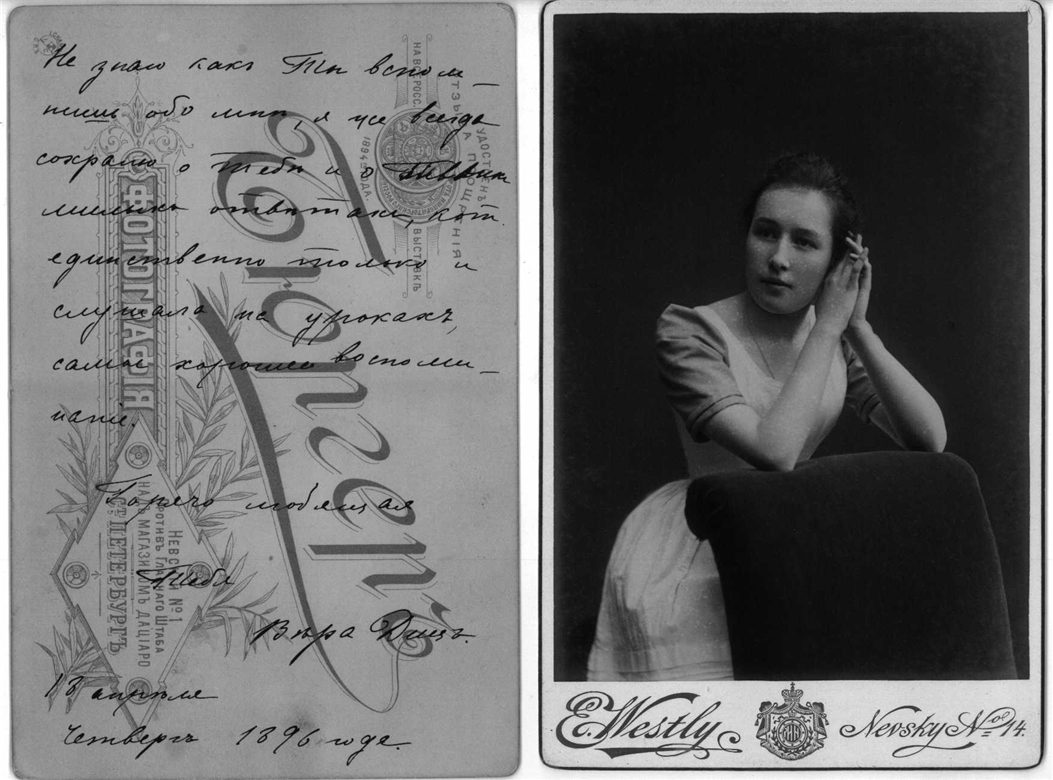 Не знаю какъ Ты вспом-
нишь обо мнѣ, я же всегда
сохраню о Тебѣ и о Твоихъ
милыхъ отвѣтахъ, кот.
единственно только и
слушала на урокахъ,
самое хорошее воспоми-
наніе.
Горячо любящая
Тебя
Вѣра Дицъ.
18 апрѣля
Четвергъ 1896 года.
ФОТОГРАФІЯ
НЕВСКІЙ №1
ПРОТИВЪ ГЛАВНАГО ШТАБА
НАДЪ МАГАЗИНОМЪ ДАЦІАРО
С. ПЕТЕРБУРГЪ
НА ВСЕРОСС. ВЫСТАВКѢ
1894 ГОДА.
E. Westly
Nevsky No. 14.